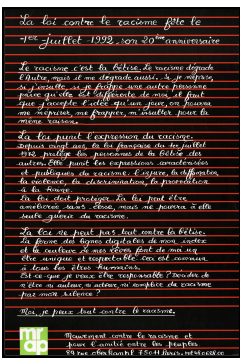 La loi contre le racisme fête le
1er juillet 1992, son 20ème anniversaire
Le racisme c'est la bêtise. Le racisme dégrade
l'Autre, mais il me dégrade aussi. Si je méprise,
si j'insulte, si je frappe une autre personne
parce qu'elle est différente de moi, il faut
que j'accepte l'idée qu'un jour, on pourra
me mépriser, me frapper, m'insulter pour la
même raison.
La loi punit l'expression du racisme.
Depuis vingt ans, la loi française du 1er juillet
1972, protège les personnes de la bêtise des
autres. Elle punit les expressions caractérisées
et publiques du racisme. l'injure, la diffamation,
la violence, la discrimination, la provocation
à la haine.
La loi doit protéger. La loi peut être
améliorée sans cesse, mais ne pourra à elle
seule guérir du racisme.
La loi ne peut pas tout contre la bêtise.
La forme des lignes digitales de mon index
et la couleur de mes lèvres font de moi un
être unique et respectable. Ceci est commun
à tous les êtres humains.
Est-ce que je veux être responsable ? Décider de
n'être ni auteur, ni acteur, ni complice du racisme
par mon silence ?
Moi, je peux tout contre le racisme.
mrap
Mouvement contre le racisme et
pour l'amitié entre les peuples.
89 rue oberkampf 75011 Paris.